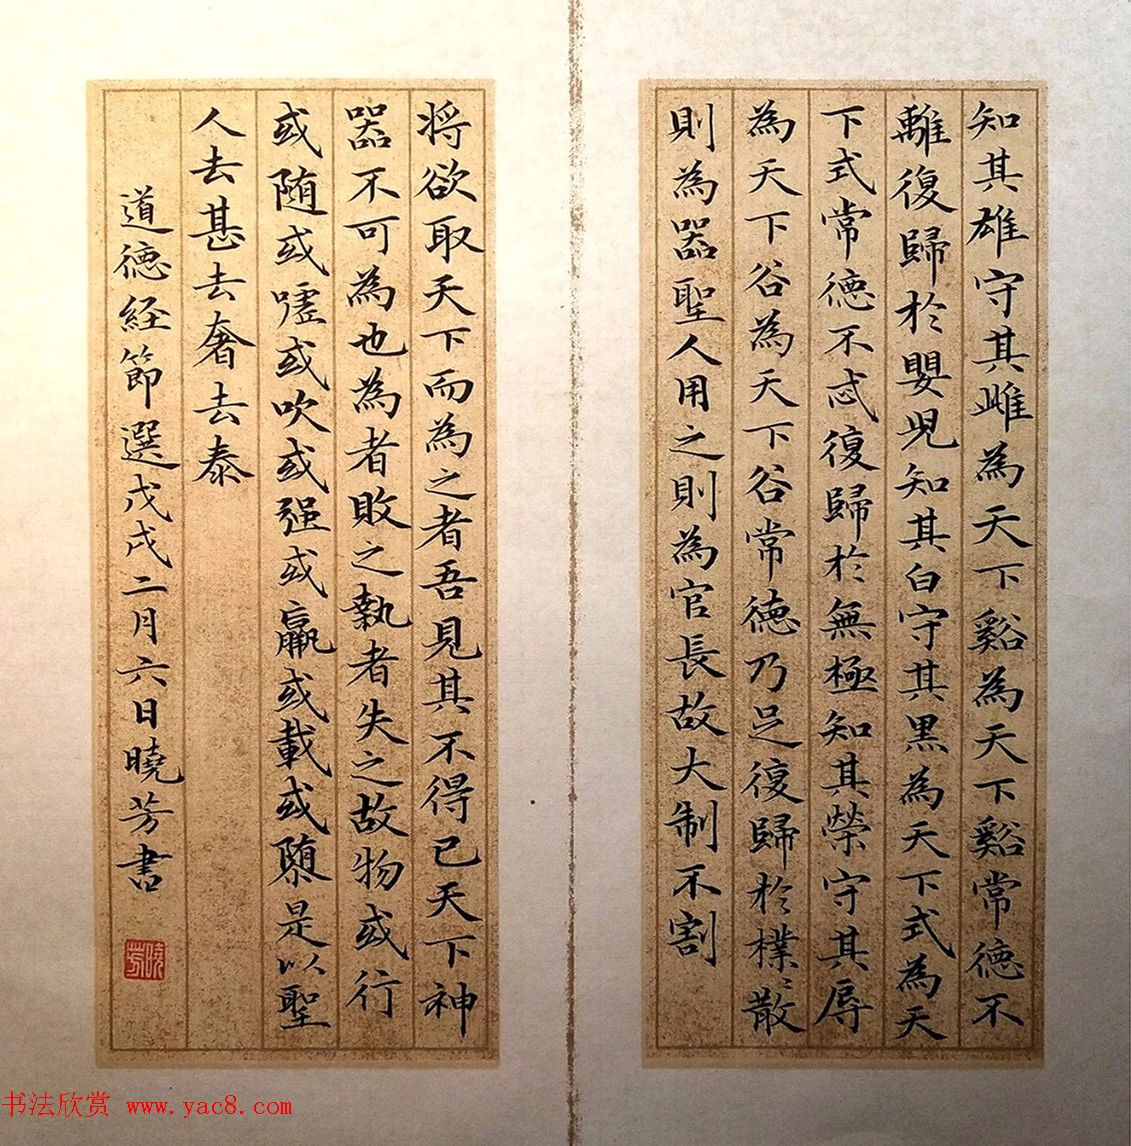 知其雄守其雌為天下谿為天下谿常德不
離復歸於嬰児知其白守其黒為天下式為天
下式常德不忒復歸於無極知其榮守其辱
為天下谷為天下谷常德乃足復歸於樸〻散
則為器聖人用之則為官長故大制不割
将欲取天下而為之者吾見其不得已天下神
器不可為也為者敗之執者失之故物或行
或随或嘘或吹或强或羸或載或隳是以聖
人去甚去奢去泰
道德経節選戊戌二月六日曉芳書
曉芳
书法欣赏 www.yac8.com